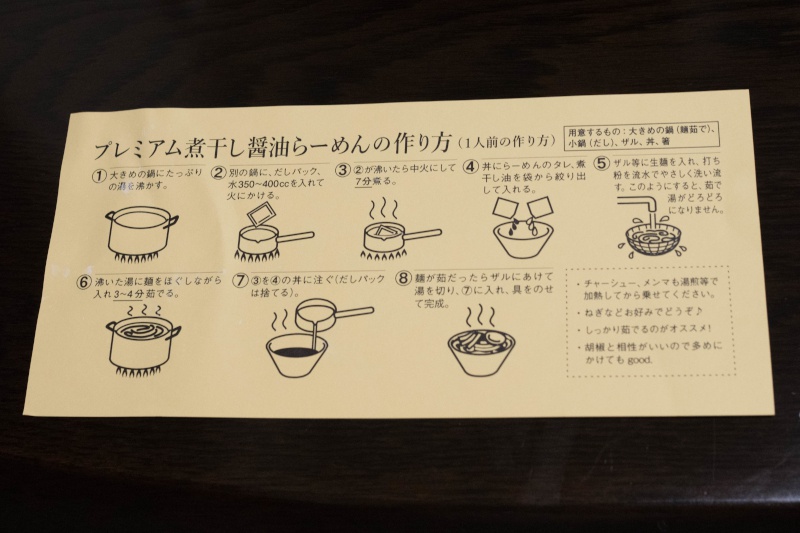 プレミアム煮干し醤油らーめんの作り方(1人前の作り方)
用意するもの:大きめの鍋(麺茹で)、
小鍋(だし)、ザル、丼、箸
①大きめの鍋にたっぷり
の湯を沸かす。
②別の鍋に、だしパック、
水350~400ccを入れて
火にかける。
③②が沸いたら中火にして
7分煮る。
④丼にらーめんのタレ、煮
干し油を袋から絞り出
して入れる。
⑤ザル等に生麺を入れ、打ち
粉を流水でやさしく洗い流
す。このようにすると、茹で
湯がどろどろ
になりません。
⑥沸いた湯に麺をほぐしながら
入れ3~4分茹でる。
⑦③を④の丼に注ぐ(だしパック
は捨てる)。
⑧麺が茹だったらザルにあけて
湯を切り、⑦に入れ、具をのせ
て完成。
・チャーシュー、メンマも湯煎等で
加熱してから乗せてください。
・ねぎなどお好みでどうぞ♪
・しっかり茹でるのがオススメ!
・胡椒と相性がいいので多めに
かけてもgood.